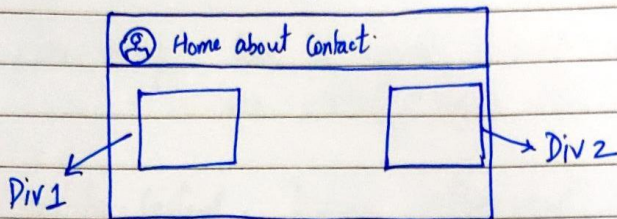 Home about Contact.
Div 2
Div1